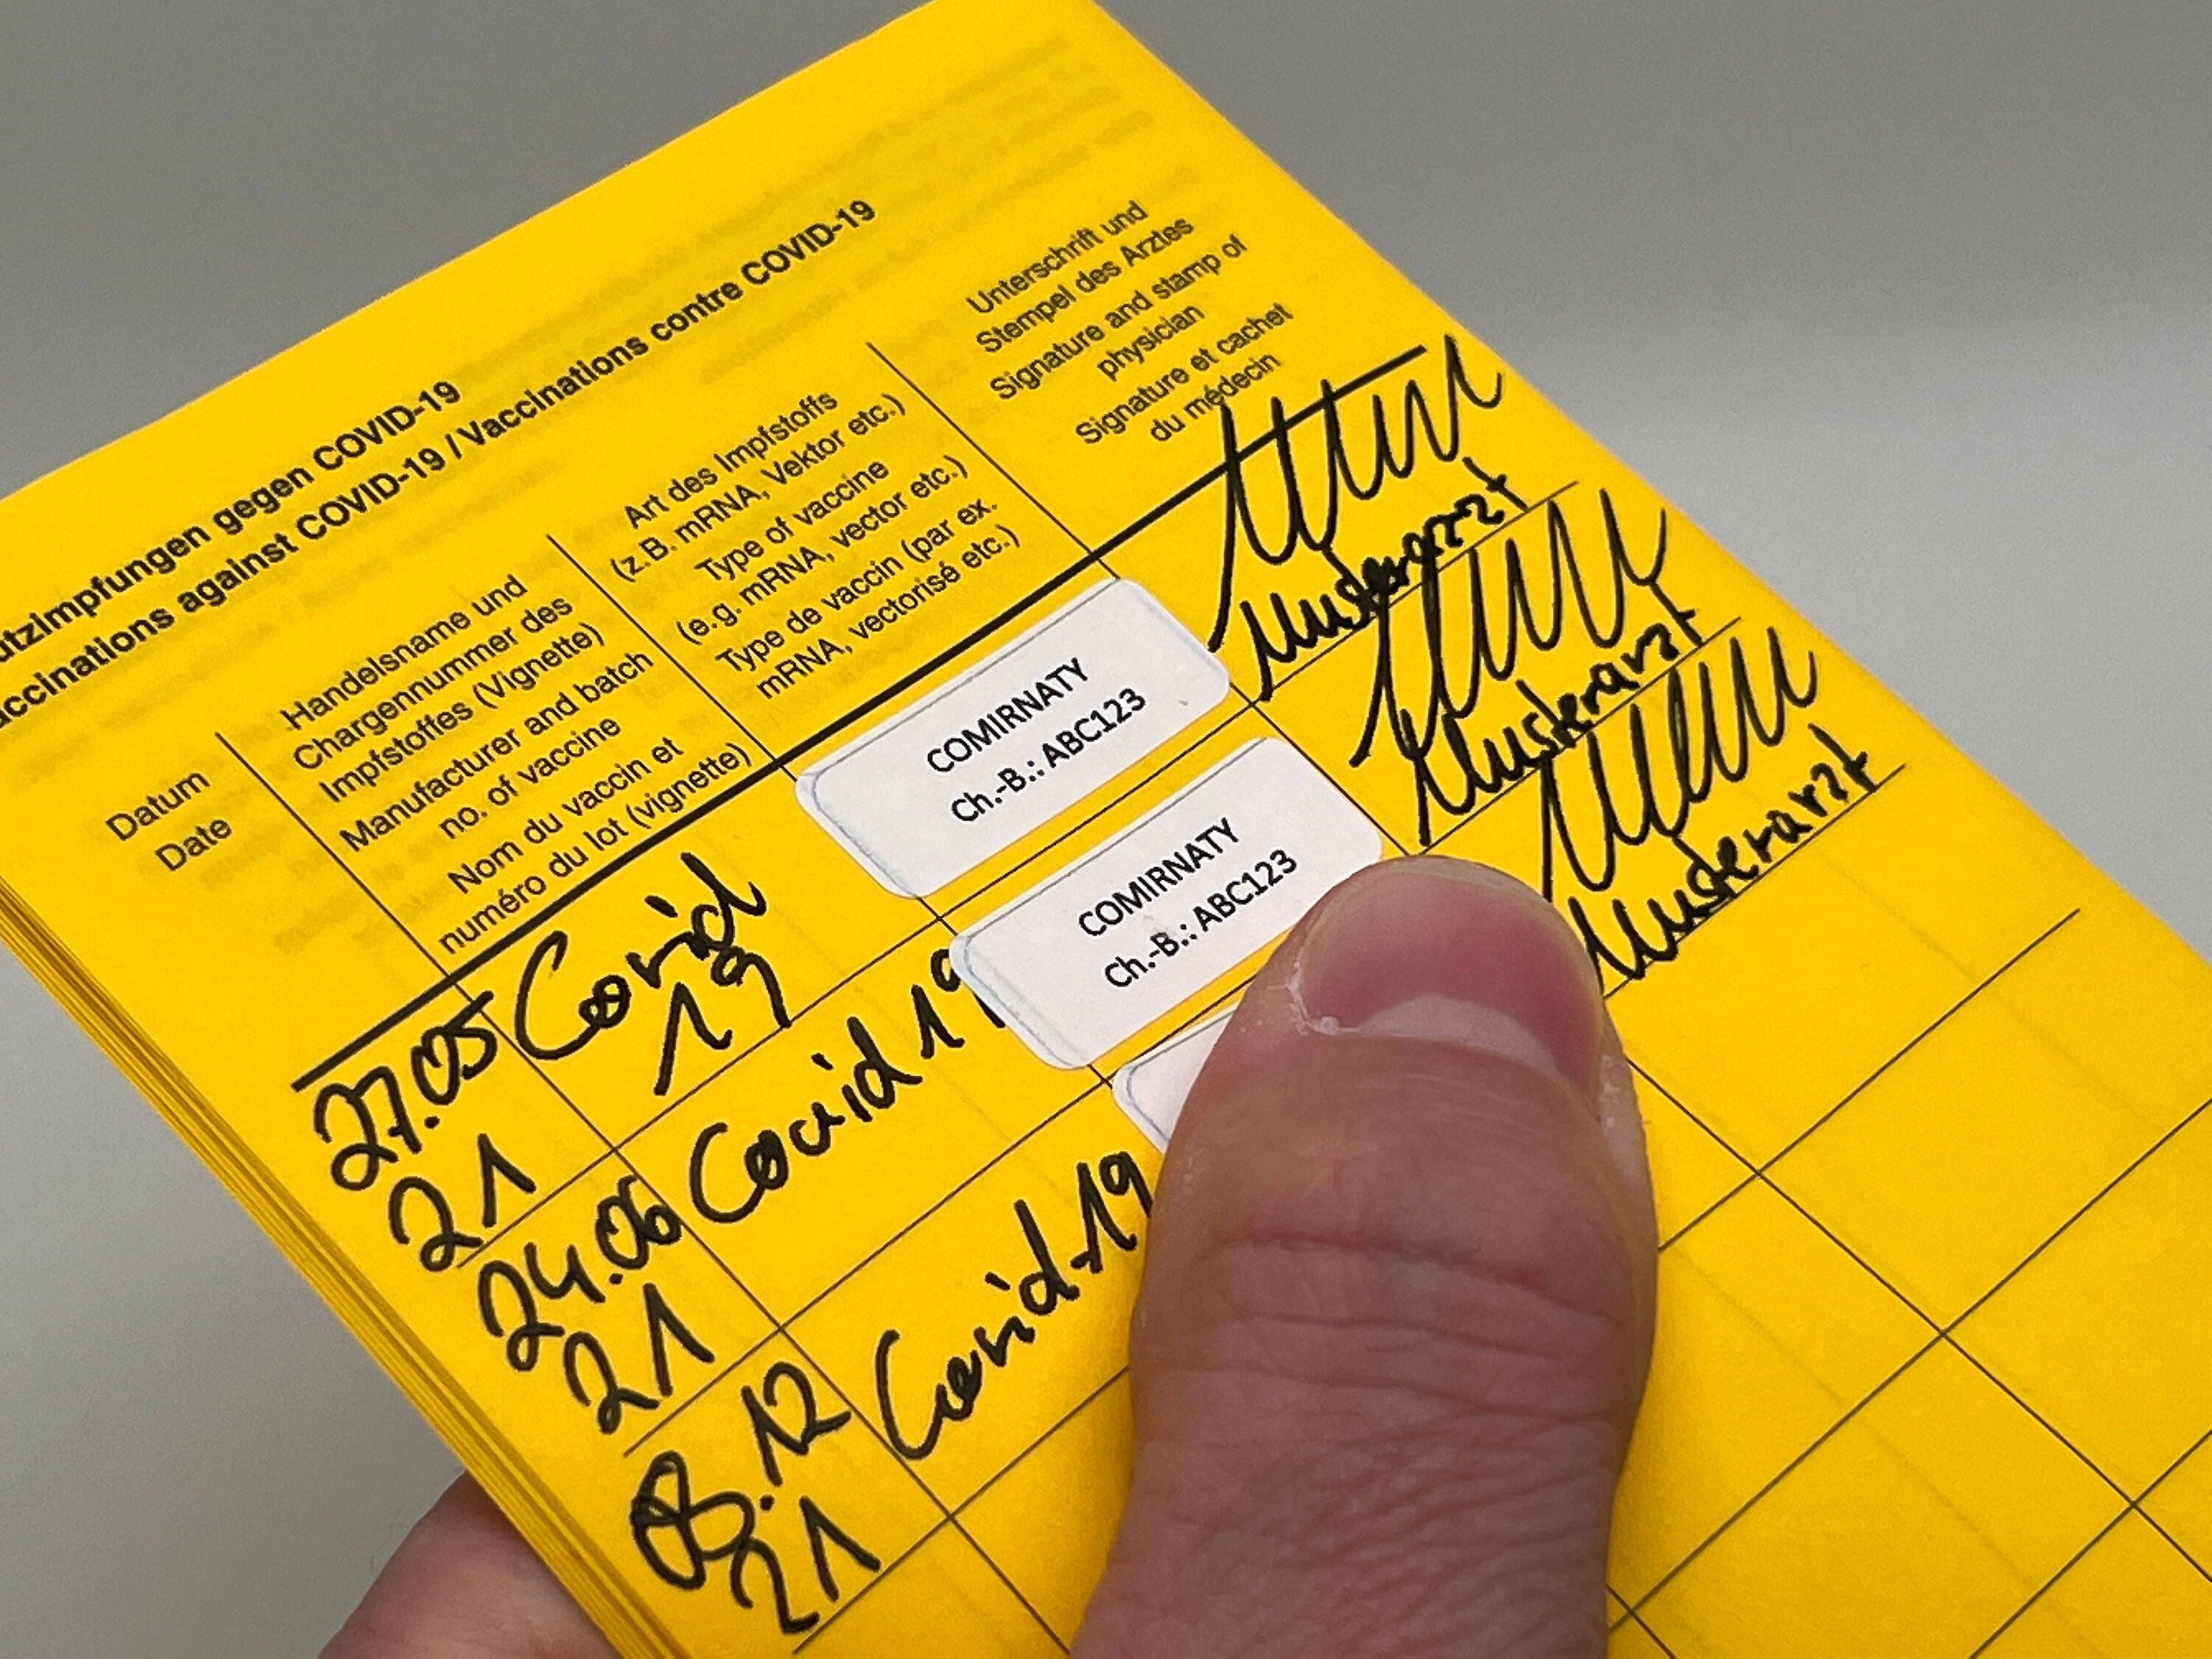 utzimpfungen gegen COVID-19
accinations against COVID-19 / Vaccinations contre COVID-19
Datum
Date
Handelsname und
Chargennummer des
Impfstoffes (Vignette)
Manufacturer and batch
no. of vaccine
Nom du vaccin et
numéro du lot (vignette)
Art des Impfstoffs
(z.B. mRNA, Vektor etc.)
Type of vaccine
(e.g. mRNA, vector etc.)
Type de vaccin (par ex.
mRNA, vectorisé etc.)
Unterschrift und
Stempel des Arztes
Signature and stamp of
physician
Signature et cachet
du médecin
27.05
21
Covid
19
COMIRNATY
Ch.-B.: ABC123
Musterarzt
24.06
21
Covid 19
COMIRNATY
Ch.-B.: ABC123
Musterarzt
08.12
21
Covid-19
Musterarzt